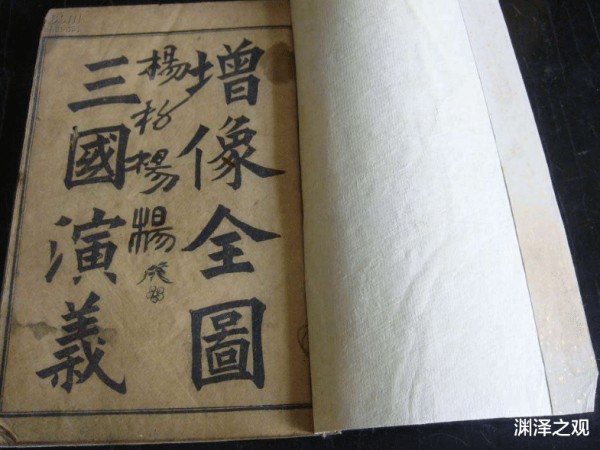 增像全圖
楊 楊楊
三國演義
渊泽之观